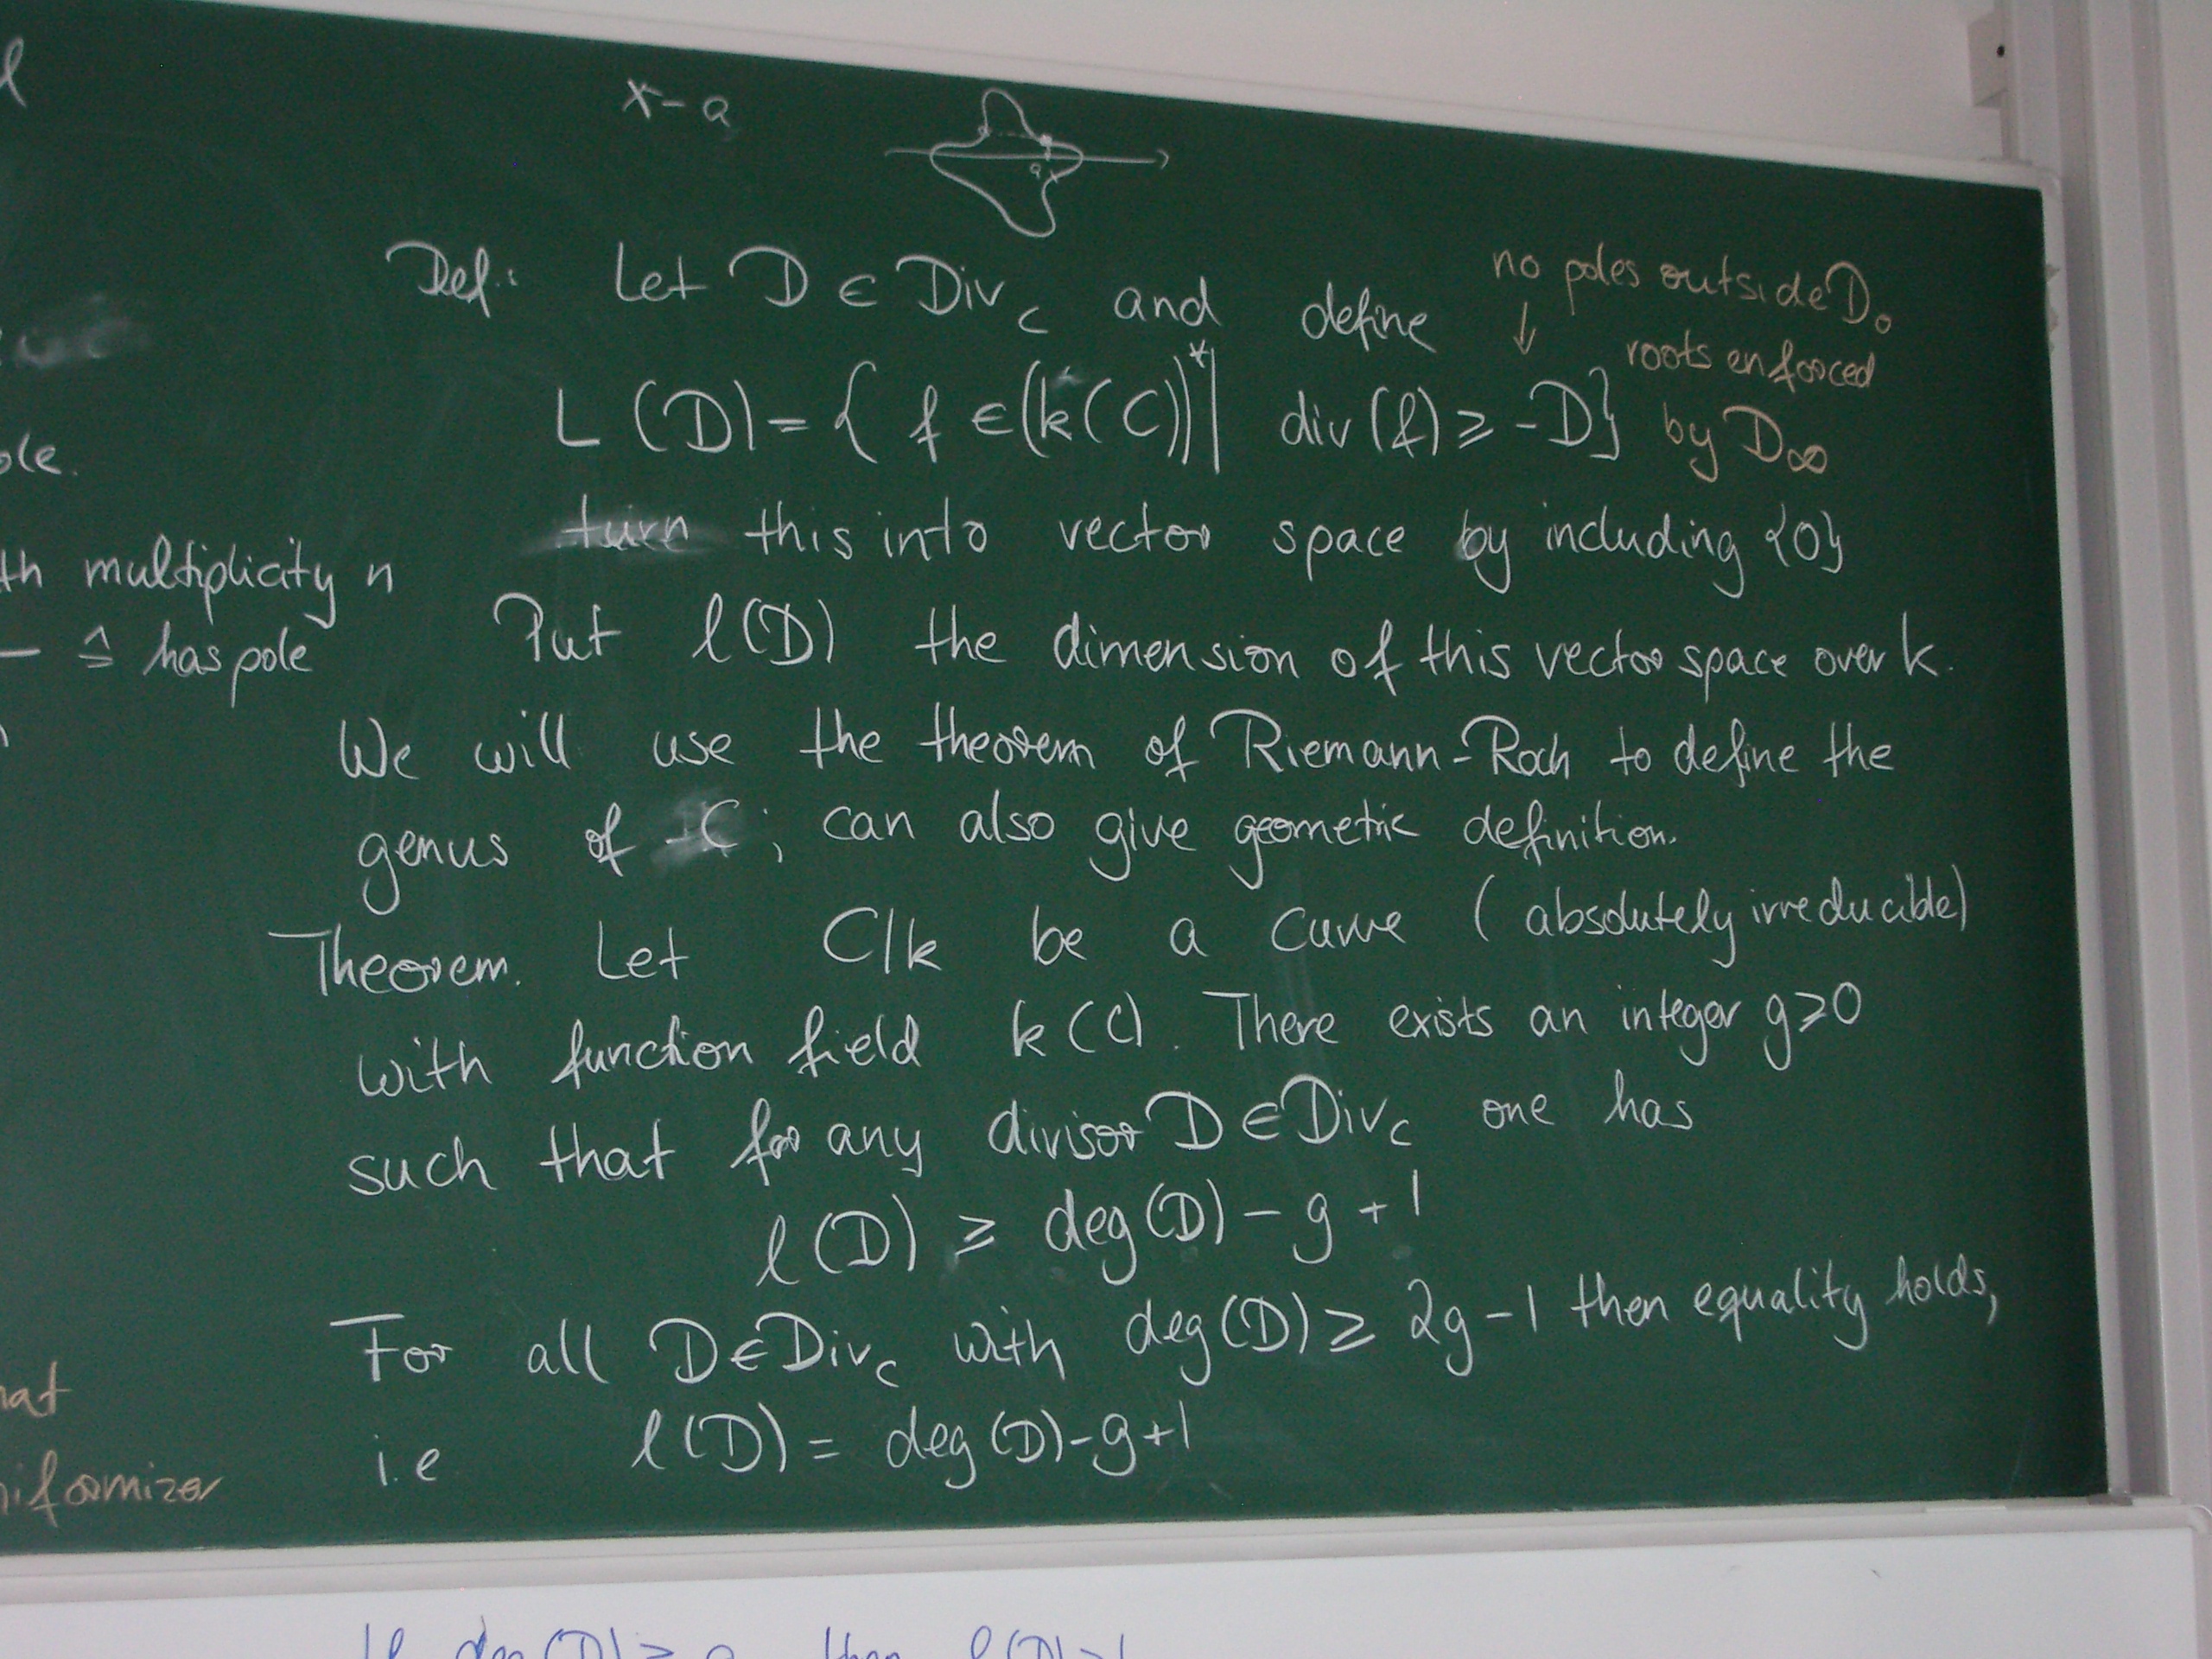 x-a
a
Def.: Let D ∈ Div_C and define
no poles outside D_0
↓ roots enforced
L(D) = { f ∈ (k(C))^* | div(f) ≥ -D} by D_∞
turn this into vector space by including {0}
th multiplicity n
Put l(D) the dimension of this vector space over k.
≙ has pole
We will use the theorem of Riemann-Roch to define the
genus of C; can also give geometric definition.
Theorem. Let C/k be a curve (absolutely irreducible)
with function field k(C). There exists an integer g≥0
such that for any divisor D ∈ Div_C one has
l(D) ≥ deg(D) - g + 1
For all D ∈ Div_C with deg(D) ≥ 2g-1 then equality holds,
i.e l(D) = deg(D)-g+1
ole.
hat
niformizer